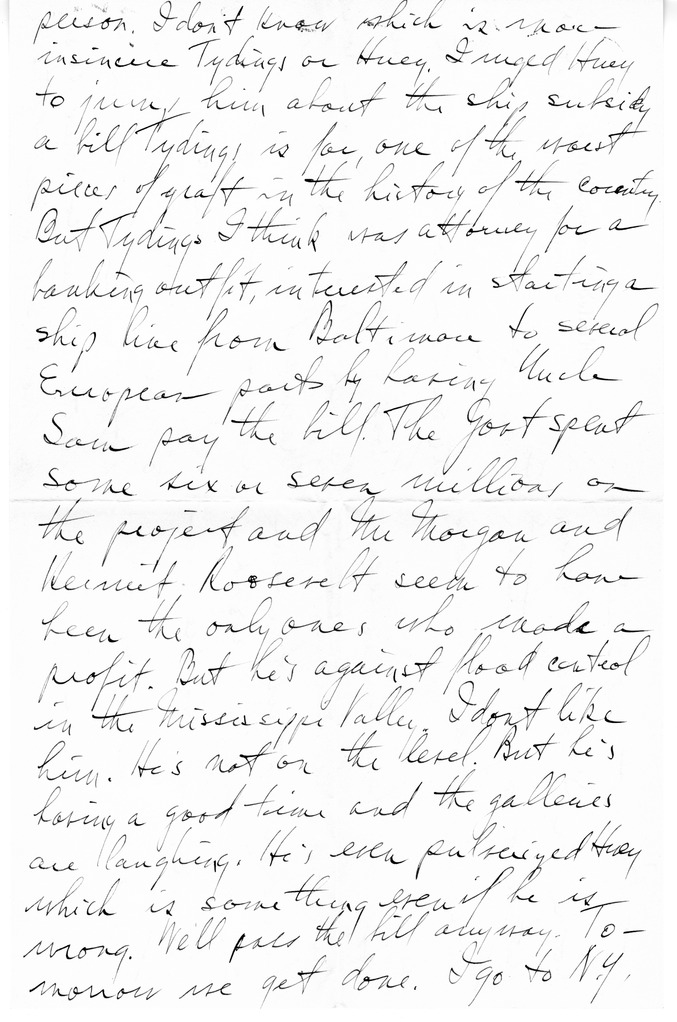 person. I don't know which is more
insincere Tydings or Huey. I urged Huey
to jump him about the ship subsidy
a bill Tydings is for, one of the worst
pieces of graft in the history of the country.
But Tydings I think was attorney for a
banking outfit, interested in starting a
ship line from Baltimore to several
European ports by having Uncle
Sam pay the bill. The Govt spent
some six or seven millions on
the project and Mr Morgan and
Kermit Roosevelt seem to have
been the only ones who made a
profit. But he's against flood control
in the Mississippi Valley. I dont like
him. He's not on the level. But he's
having a good time and the galleries
are laughing. He's even pulverized Huey
which is something even if he is
wrong. We'll pass the bill anyway. To-
morrow we get done. I go to N.Y.